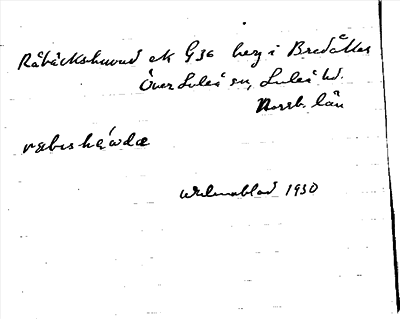 Råbäckshuvud ek G36 berg i Bredåker
Över Luleå sn, Luleå hd.
Norrb. län
Wilenablad 1930